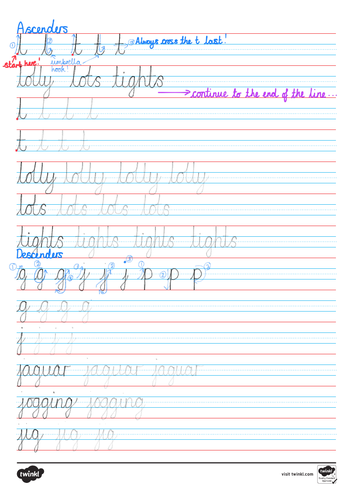 Ascenders
l l t t t Always cross the t last!
start here! umbrella hook!
lolly lots tights
continue to the end of the line...
l l l l
t t t t
lolly lolly lolly lolly
lots lots lots lots
tights tights tights tights
Descenders
g g g j j j p p p
g g g g
j j j j
jaguar jaguar jaguar
jogging jogging
jig jig jig
twinkl visit twinkl.com